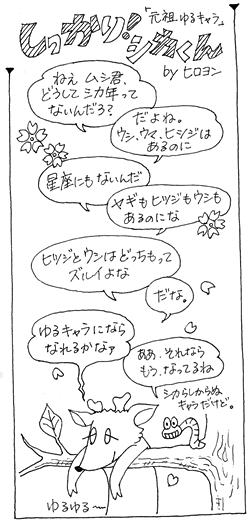 「元祖ゆるキャラ」
しっかり!シカくん
by ヒロヨン
ねぇ ムシ君、
どうしてシカ年って
ないんだろ?
だよね。
ウシ、ウマ、ヒツジは
あるのに
星座にもないんだ
ヤギもヒツジもウシも
あるのにな
ヒツジとウシはどっちもって
ズルイよな
だな。
ゆるキャラになら
なれるかなァ
ああ、それなら
もう、なってるね
シカらしからぬ
キャラだけど。
ゆるゆる〜